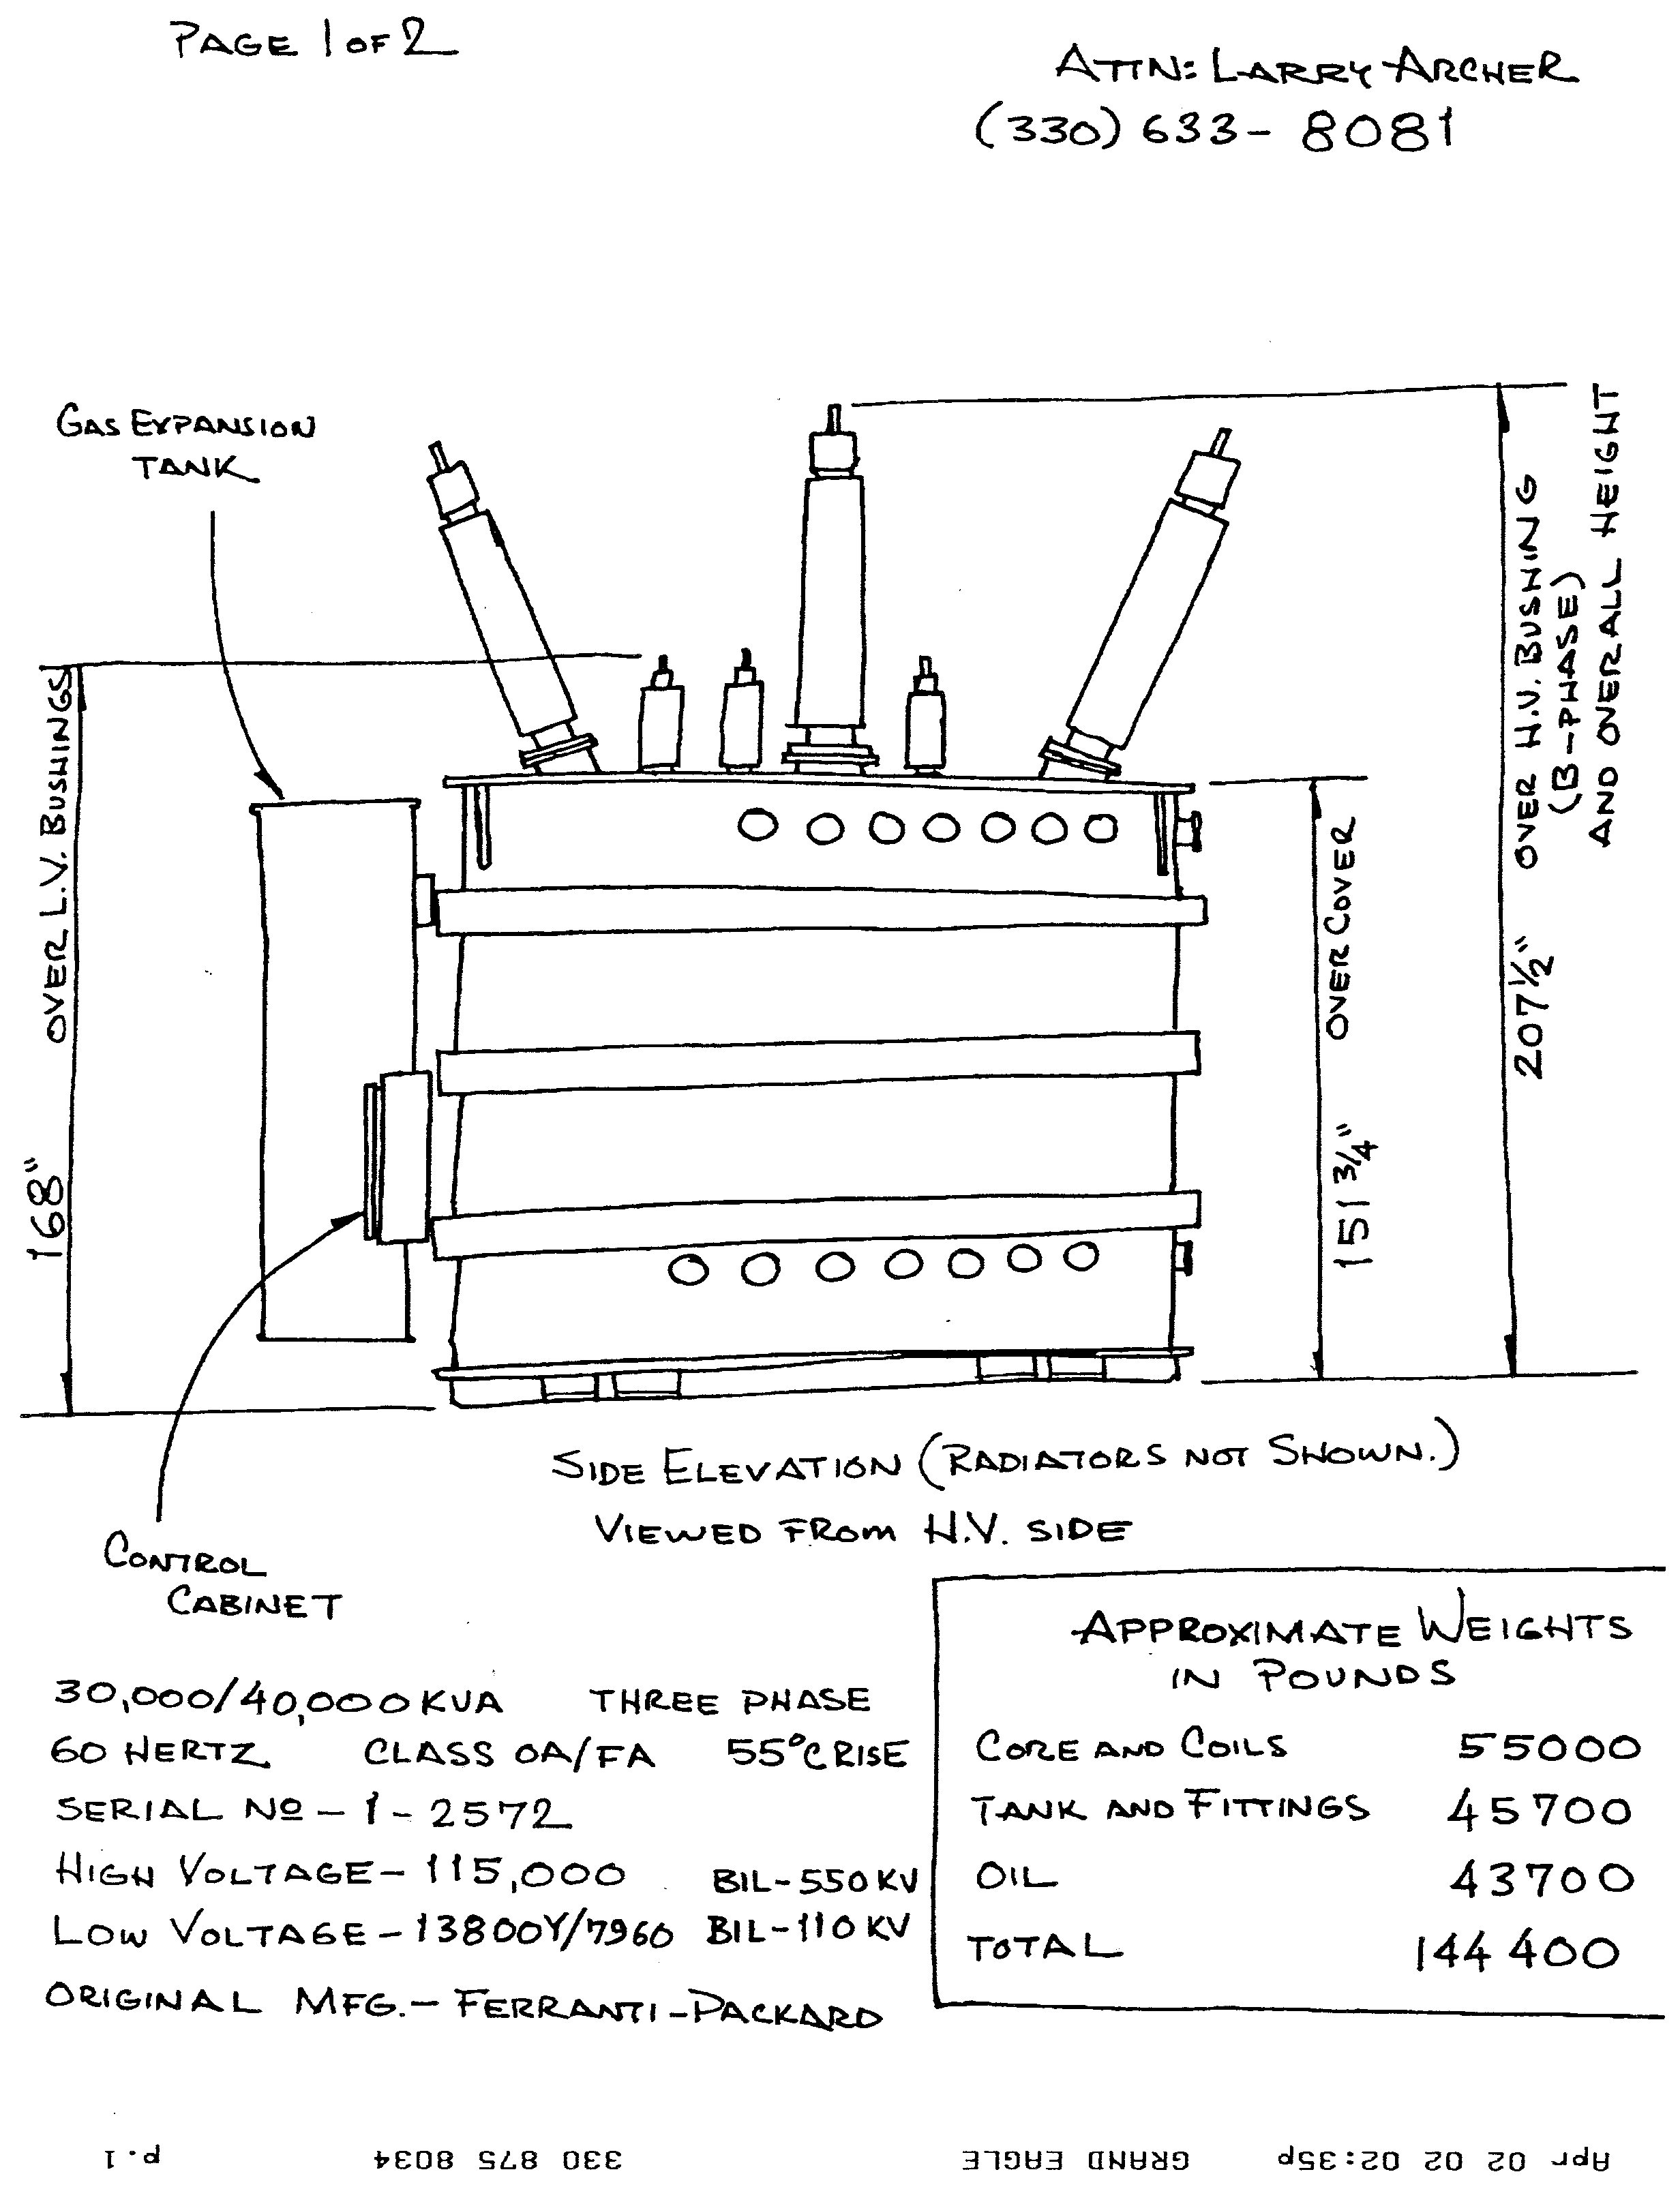 PAGE 1 OF 2
ATTN: LARRY ARCHER
(330) 633-8081
GAS EXPANSION
TANK
168" OVER L.V. BUSHINGS
151 3/4" OVER COVER
207 1/2" OVER H.V. BUSHING
(B-PHASE)
AND OVERALL HEIGHT
SIDE ELEVATION (RADIATORS NOT SHOWN.)
VIEWED FROM H.V. SIDE
CONTROL
CABINET
30,000/40,000 KVA THREE PHASE
60 HERTZ CLASS OA/FA 55°C RISE
SERIAL Nº - 1 - 2572
HIGH VOLTAGE - 115,000 BIL - 550 KV
LOW VOLTAGE - 13800Y/7960 BIL - 110 KV
ORIGINAL MFG. - FERRANTI-PACKARD
APPROXIMATE WEIGHTS
IN POUNDS
CORE AND COILS 55000
TANK AND FITTINGS 45700
OIL 43700
TOTAL 144400
Apr 02 02 02:35p GRAND EAGLE 330 875 8034 p.1